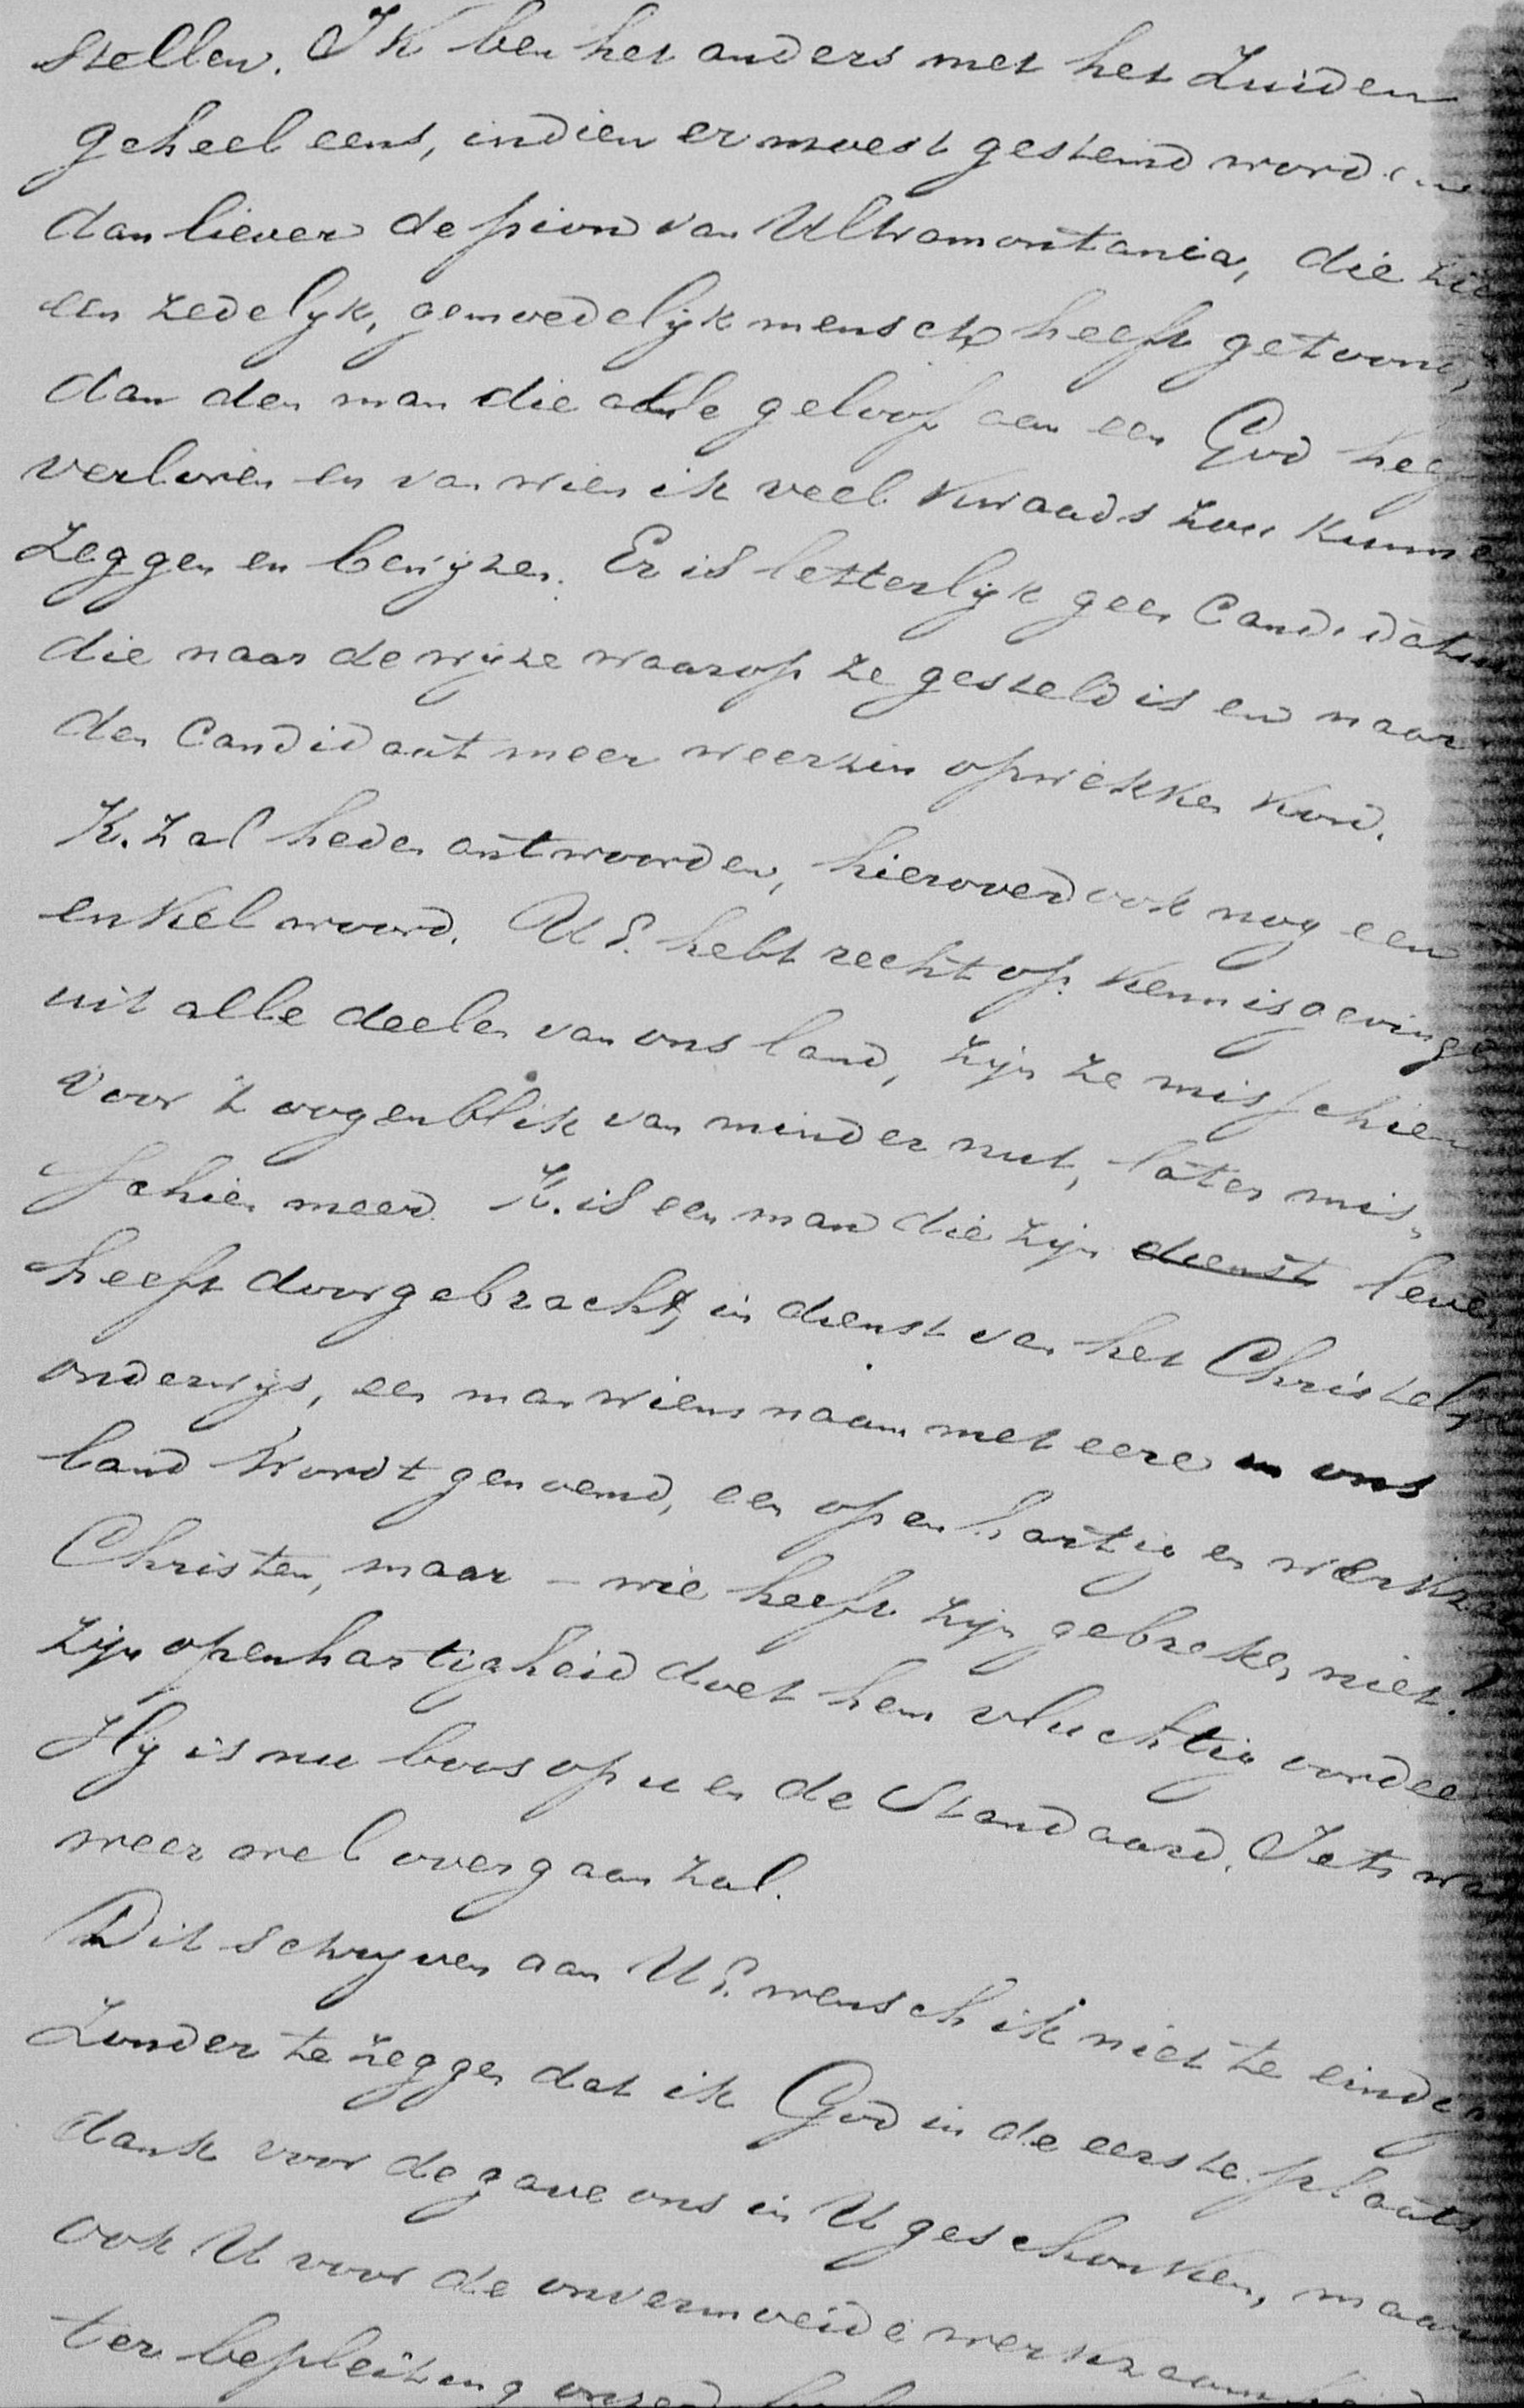 stellen. Ik ben het anders met het Zuiden
geheel eens, indien er moest gestemd worden
dan liever de pion van Ultramontania, die zich
een zedelijk, gemoedelijk mensch heeft getoond,
dan den man die alle geloof aan een God heeft
verloren en van wien ik veel kwaads zou kunnen
zeggen en bewijzen. Er is letterlijk geen Candidatuur
die naar de wijze waarop ze gesteld is en naar
den Candidaat meer weerzin opwekken kon.
K. zal heden antwoorden, hierover ook nog een
enkel woord. UE. hebt recht op kennisgevingen
uit alle deelen van ons land, zijn ze misschien
voor 't oogenblik van minder nut, later mis-
schien meer. K. is een man die zijn dienst leven
heeft doorgebracht, in dienst van het Christelijk
onderwijs, een man wiens naam met eere in ons
land wordt genoemd, een openhartig en werkzaam
Christen, maar – wie heeft zijn gebreken niet?
zijn openhartigheid doet hem vluchtig oordeelen
Hij is nu boos op u en de Standaard. Iets wat
weer wel overgaan zal.
Dit schrijven aan UE. wensch ik niet te eindigen
Zonder te zeggen dat ik God in de eerste plaats
dank voor de gave ons in U geschonken, maar
ook U voor de onvermoeide werkzaamheid
ter bepleiting onzer